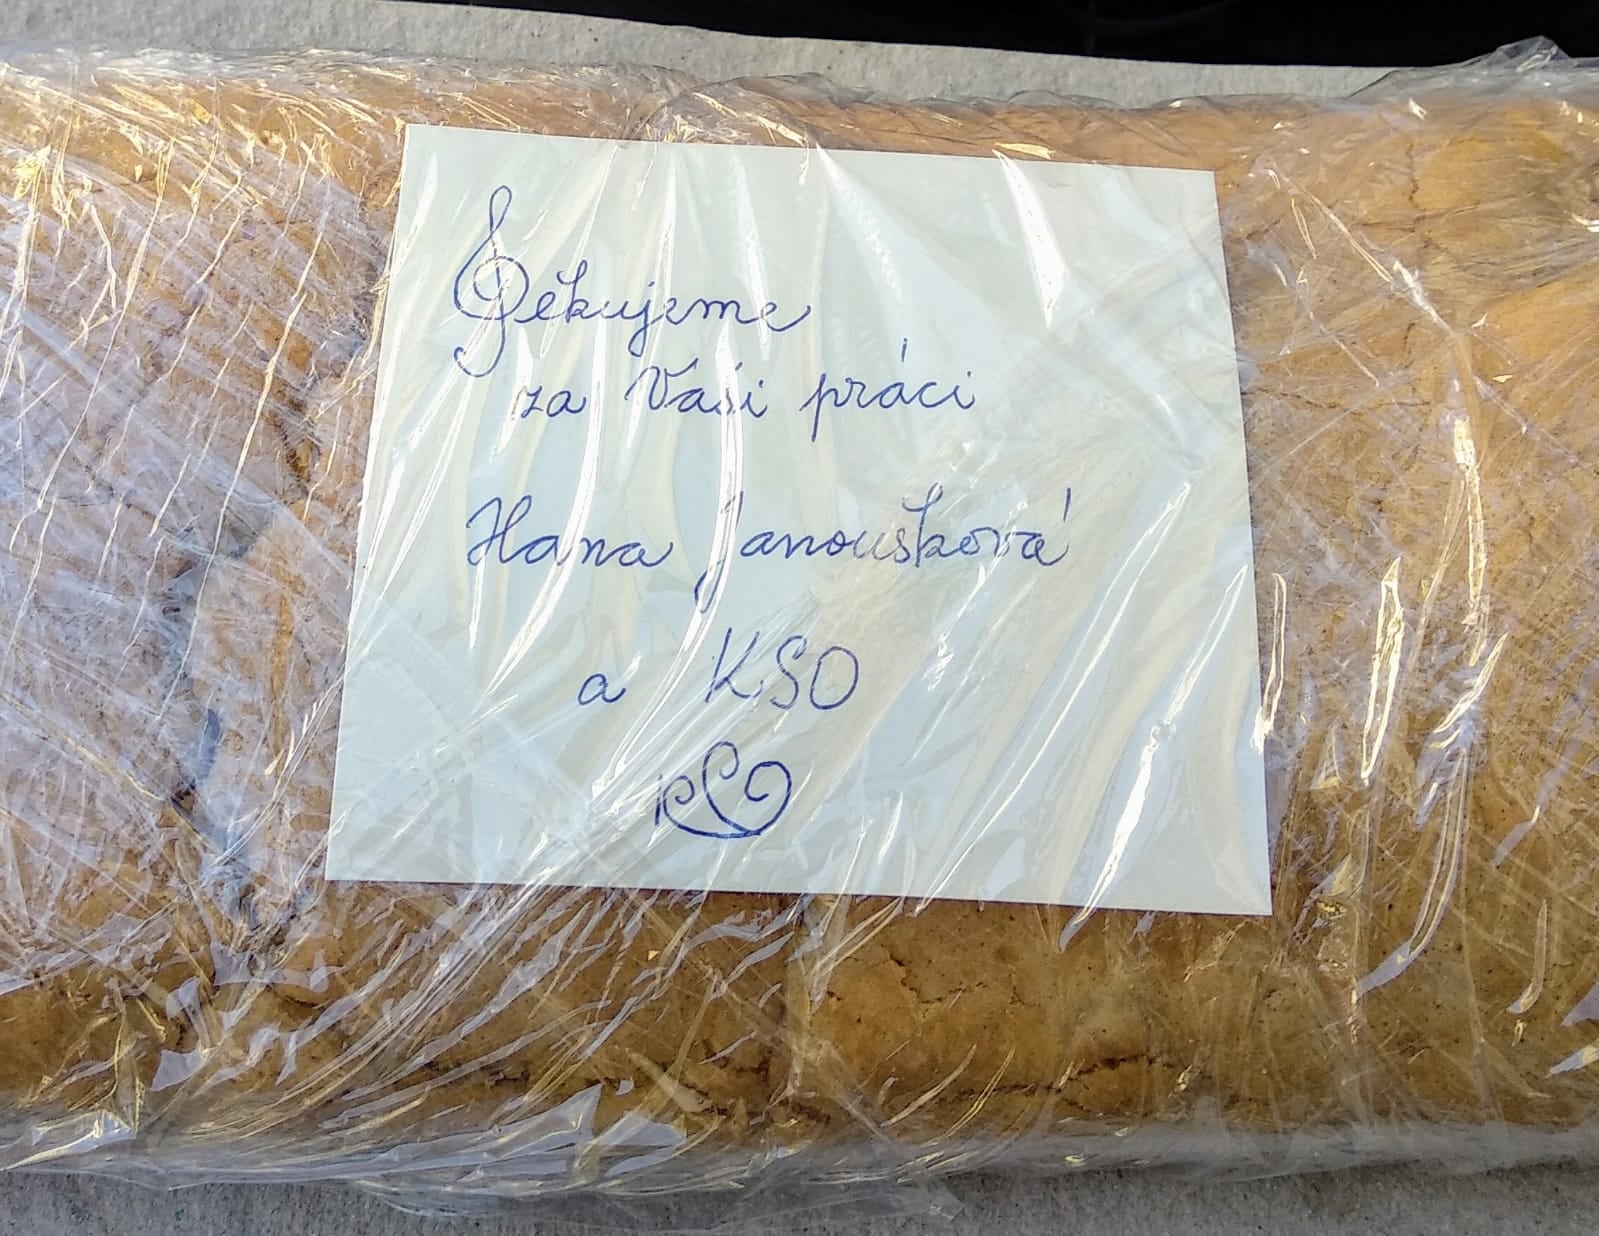 Děkujeme
za Vaši práci
Hana Janoušková
a KSO